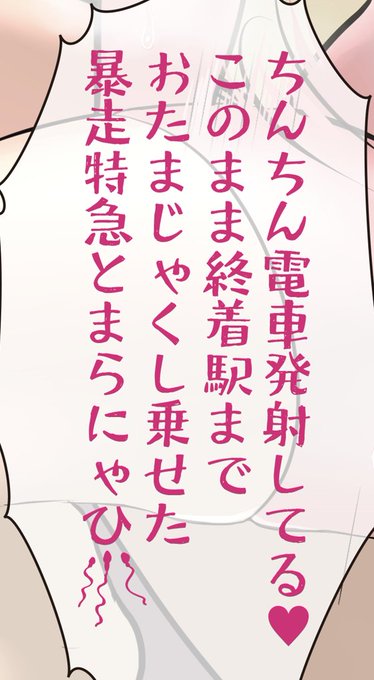 ちんちん電車発射してる♥
このまま終着駅まで
おたまじゃくし乗せた
暴走特急とまらにゃひ